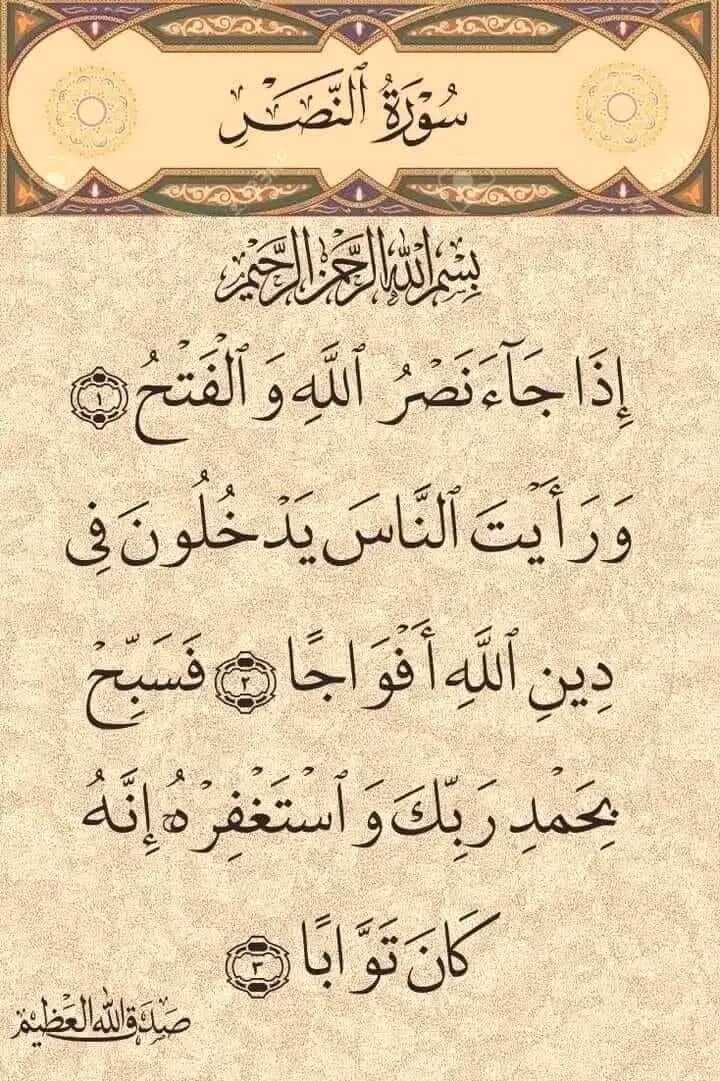 سُورَةُ ٱلنَّصْرِ
بِسْمِ ٱللَّهِ ٱلرَّحْمَٰنِ ٱلرَّحِيمِ
إِذَا جَآءَ نَصْرُ ٱللَّهِ وَٱلْفَتْحُ ١
وَرَأَيْتَ ٱلنَّاسَ يَدْخُلُونَ فِى
دِينِ ٱللَّهِ أَفْوَاجًا ٢ فَسَبِّحْ
بِحَمْدِ رَبِّكَ وَٱسْتَغْفِرْهُ إِنَّهُ
كَانَ تَوَّابًا ٣
صَدَقَ اللهُ العَظِيمُ